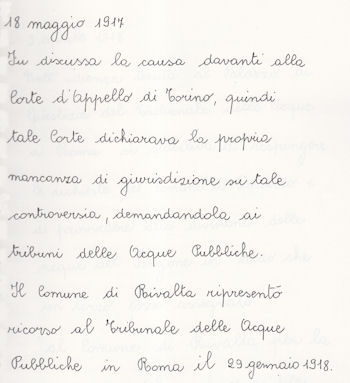 18 maggio 1917
Fu discussa la causa davanti alla
Corte d'Appello di Torino, quindi
tale Corte dichiarava la propria
mancanza di giurisdizione su tale
controversia, demandandola ai
tribuni delle Acque Pubbliche.
Il Comune di Rivalta ripresentò
ricorso al Tribunale delle Acque
Pubbliche in Roma il 29 gennaio 1918.